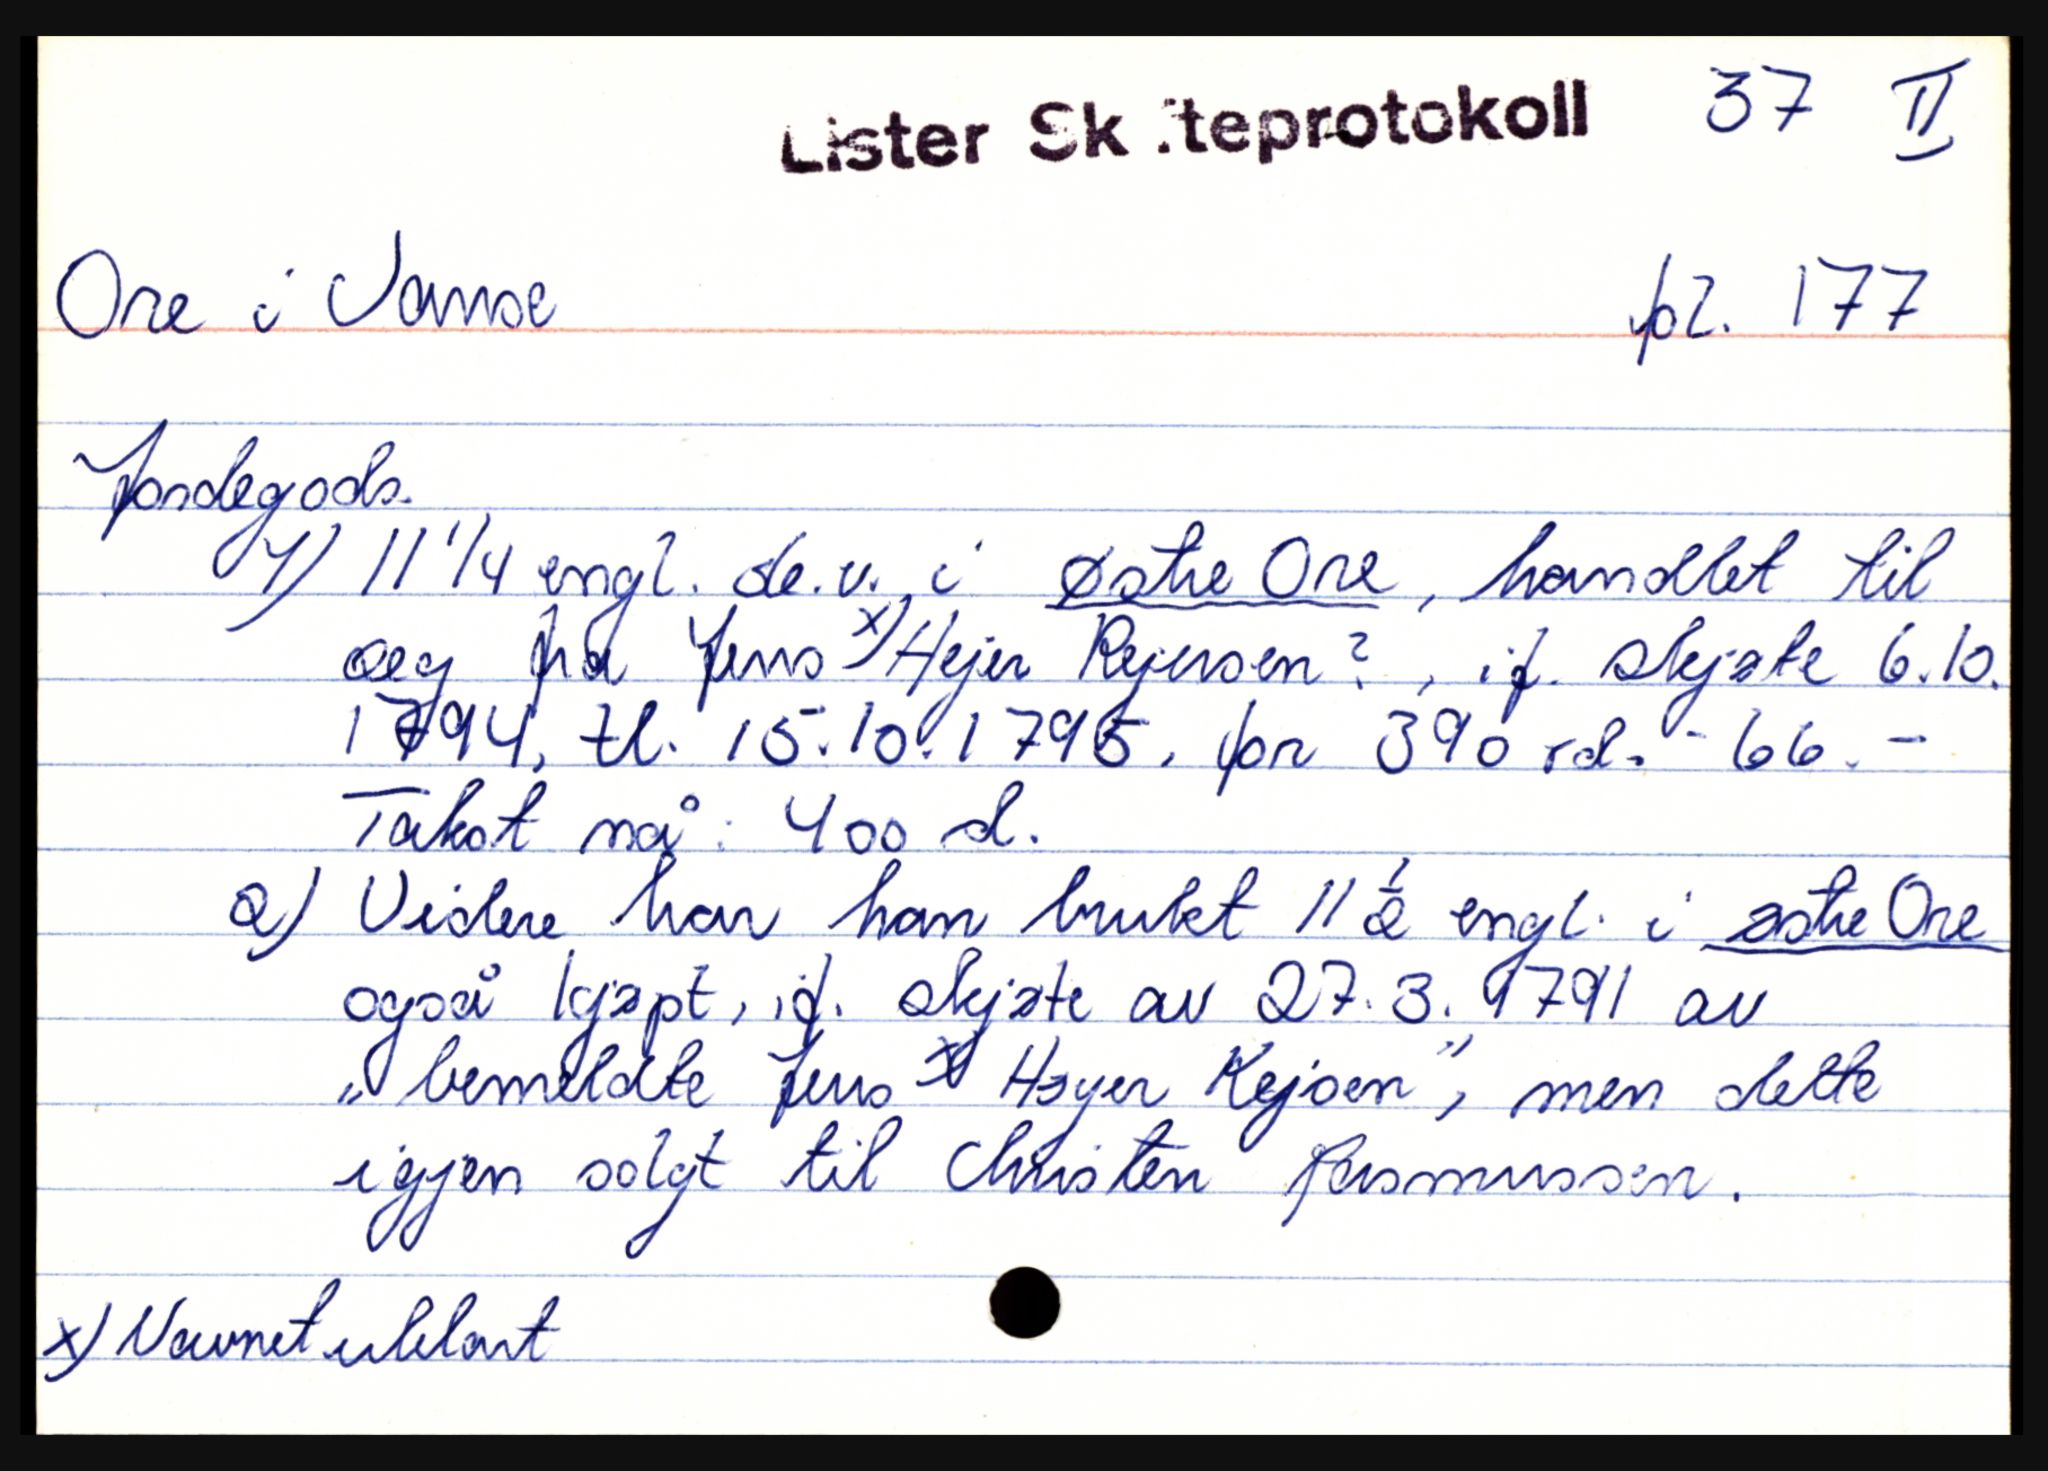 Lister Sk iteprotokoll 37 II
Ore i Vanse fol. 177
Jordegods.
1) 11 1/4 engl. s.e.v. i østre Ore, handlet til
seg fra Jens x) Hejer Rejersen?, if. skjøte 6.10.
1794, tl. 15.10.1795, for 390 rd. - 66. -
Takst nå: 400 d.
2) Videre har han brukt 11 1/2 engl. i østre Ore
også kjøpt, if. skjøte av 27.3.1791 av
"bemeldte Jens x) Høyer Rejsen", men dette
igjen solgt til Christen Rasmussen.
x) Navnet uklart